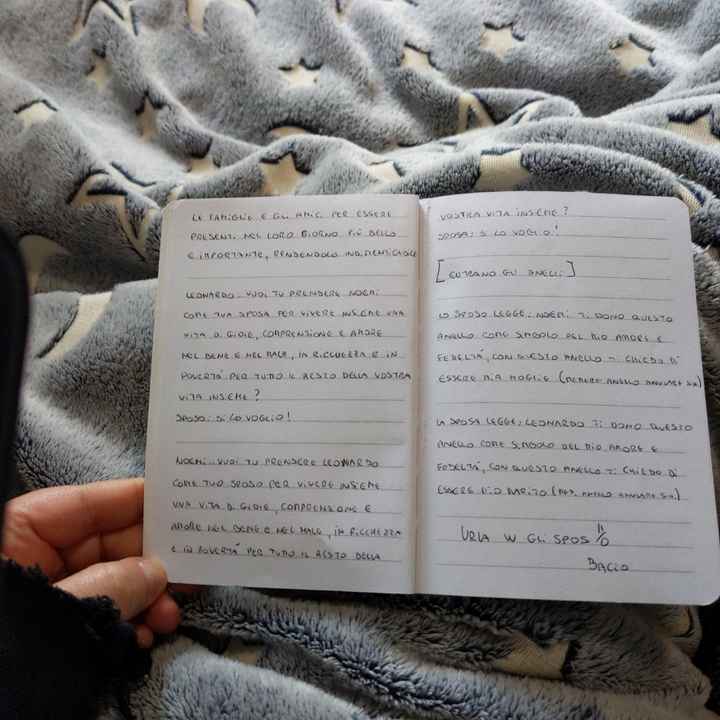 LE FAMIGLIE E GLI AMICI PER ESSERE
PRESENTI NEL LORO GIORNO PIÙ BELLO
E IMPORTANTE, RENDENDOLO INDIMENTICABILE
LEONARDO.. VUOI TU PRENDERE NOEMI
COME TUA SPOSA PER VIVERE INSIEME UNA
VITA DI GIOIE, COMPRENSIONE E AMORE
NEL BENE E NEL MALE, IN RICCHEZZA E IN
POVERTÀ PER TUTTO IL RESTO DELLA VOSTRA
VITA INSIEME?
SPOSO: SI LO VOGLIO!
NOEMI... VUOI TU PRENDERE LEONARDO
COME TUO SPOSO PER VIVERE INSIEME
UNA VITA DI GIOIE, COMPRENSIONE E
AMORE NEL BENE E NEL MALE, IN RICCHEZZA
E IN POVERTÀ PER TUTTO IL RESTO DELLA
VOSTRA VITA INSIEME?
SPOSA: SI LO VOGLIO!
[ENTRANO GLI ANELLI]
LO SPOSO LEGGE: NOEMI TI DONO QUESTO
ANELLO COME SIMBOLO DEL MIO AMORE E
FEDELTÀ, CON QUESTO ANELLO TI CHIEDO DI
ESSERE MIA MOGLIE (METTERE ANELLO ANULARE SX)
LA SPOSA LEGGE: LEONARDO TI DONO QUESTO
ANELLO COME SIMBOLO DEL MIO AMORE E
FEDELTÀ, CON QUESTO ANELLO TI CHIEDO DI
ESSERE MIO MARITO (MET. ANELLO ANULARE SX)
URLA W GLI SPOSI
BACIO